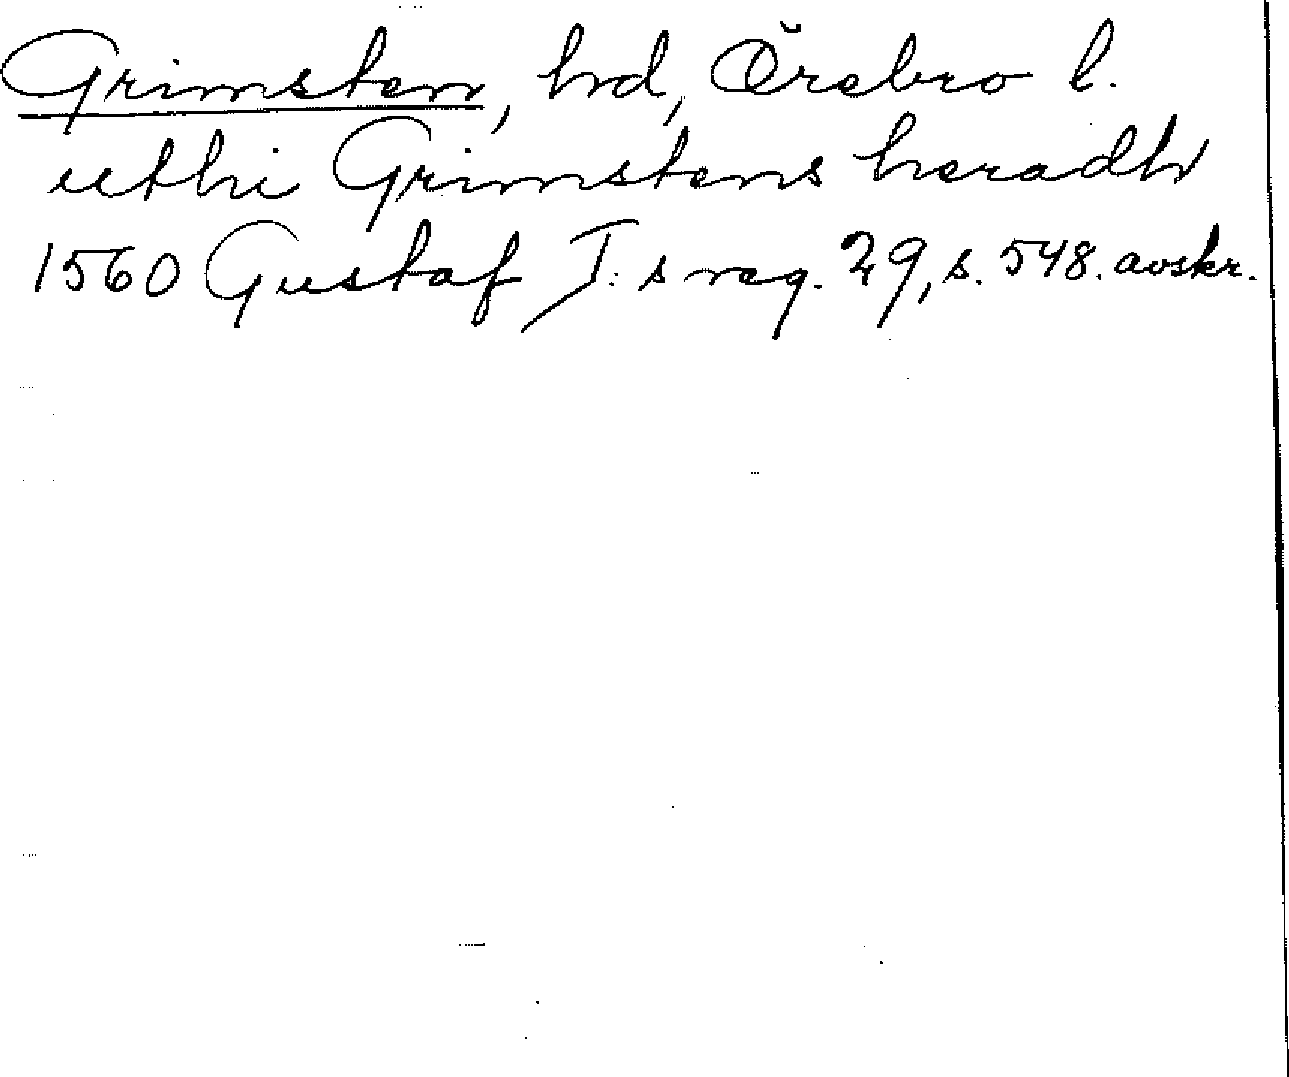 Grimsten, hd, Örebro l.
uthi Grimstens heradh
1560 Gustaf I:s reg. 29, s. 548. avskr.